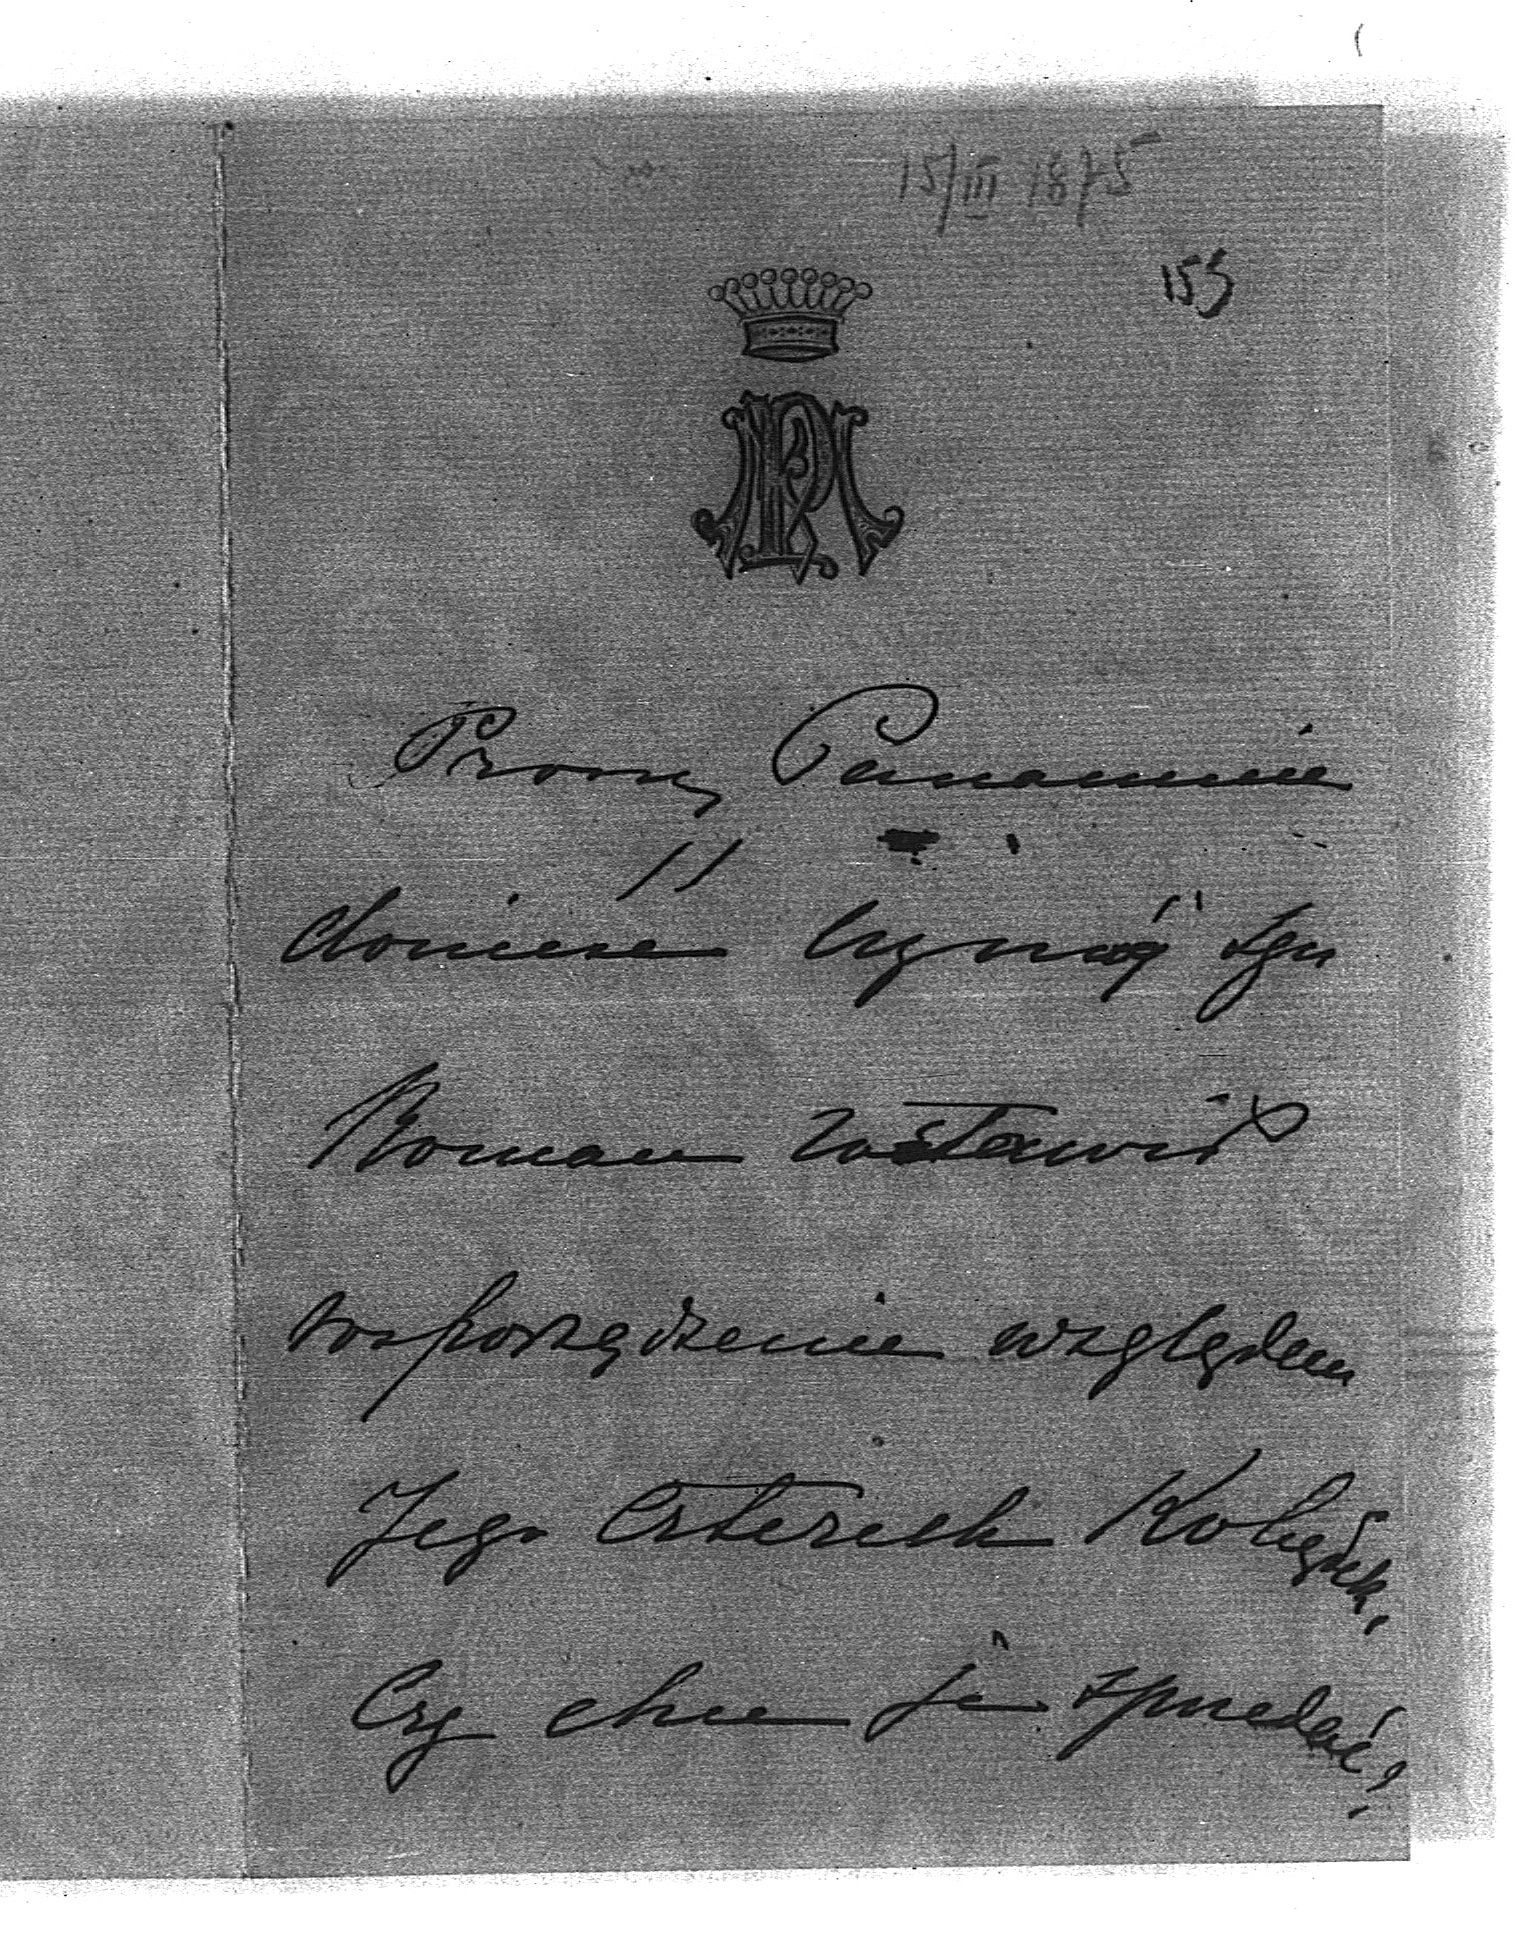 15/III 1875
155
Proszę Pana mnie
donieść czy mój syn
Roman zostawił
rozporządzenie względem
Jego czterech Kolęd,
Czy chce je sprzedać?